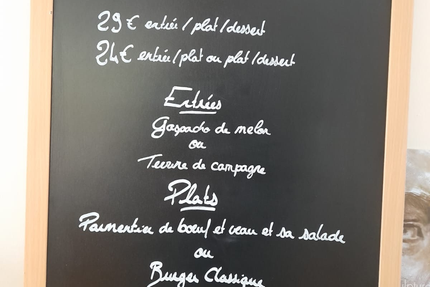 29€ entrée/plat/dessert
24€ entrée/plat ou plat/dessert
Entrées
Gaspacho de melon
ou
Terrine de campagne
Plats
Parmentier de boeuf et veau et sa salade
ou
Burger Classique